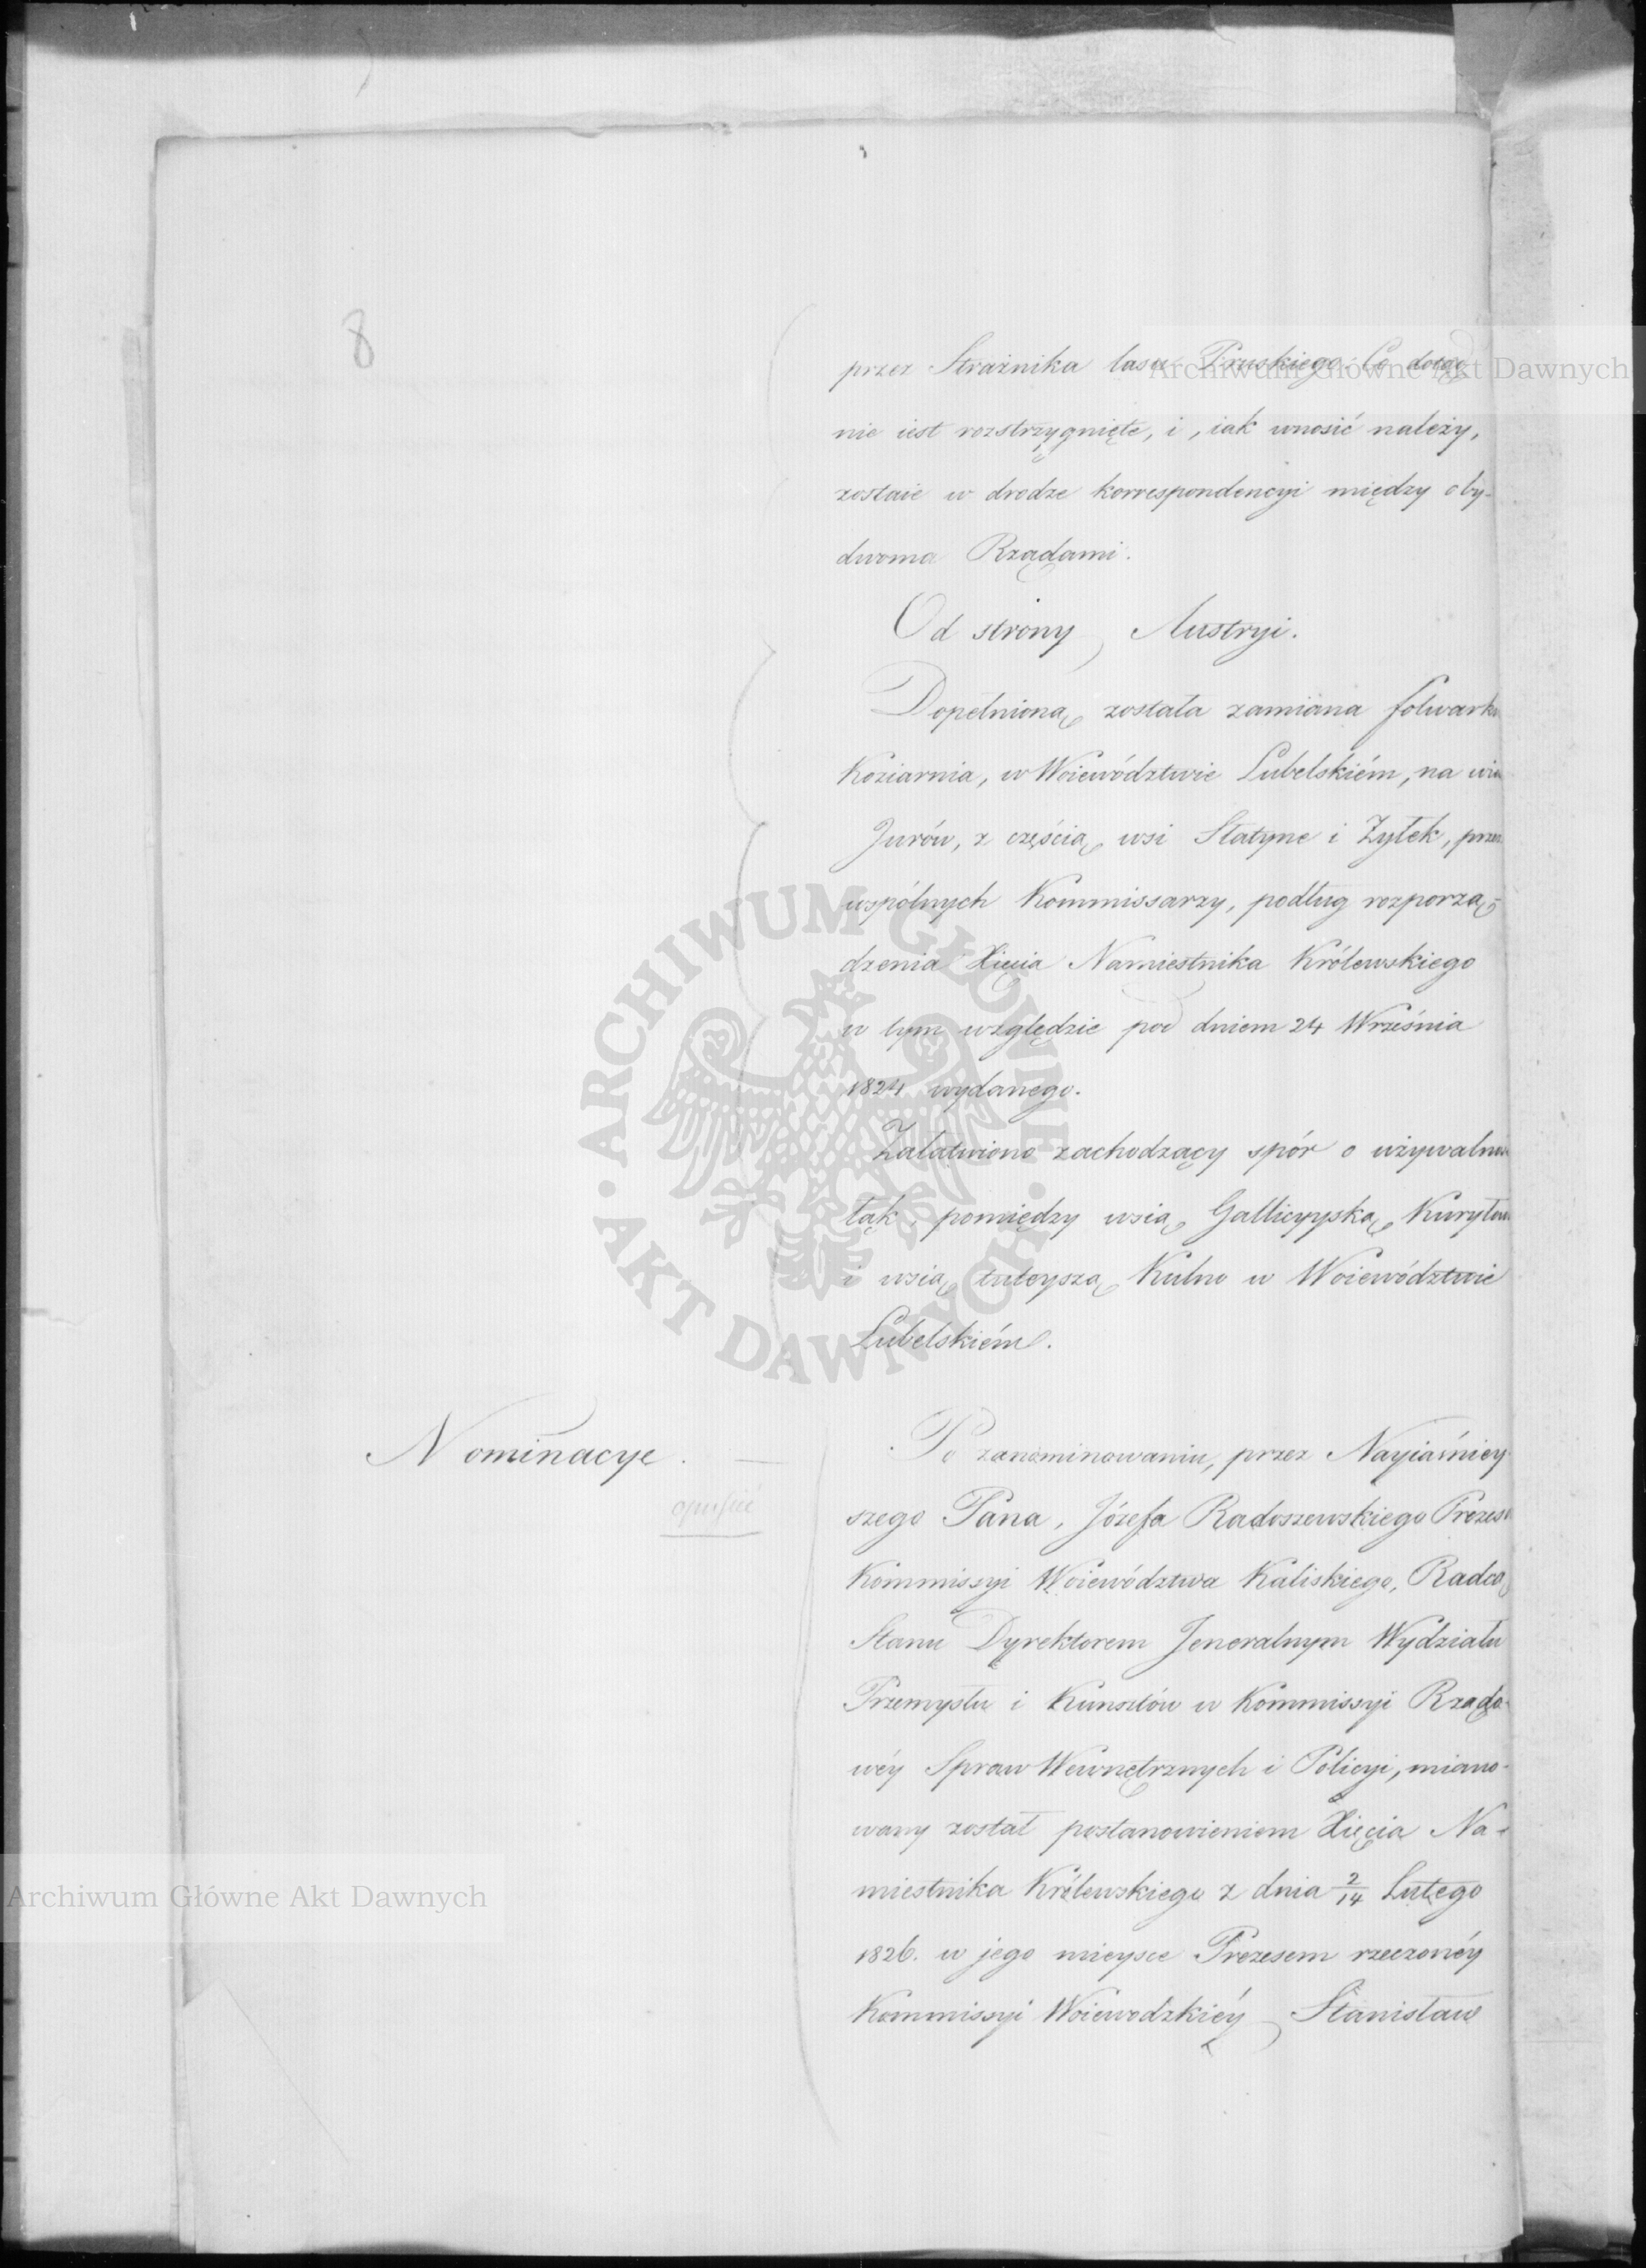 8
przez Strażnika lasu Pruskiego. Co dotąd
nie iest rozstrzygnięte, i, iak wnosić należy,
zostaie w drodze korrespondencyi między oby-
dwoma Rządami.
Od strony Austryi.
Dopełnioną została zamiana folwarku
Koziarnia, w Woiewództwie Lubelskiém, na wieś
Jurów, z częścią wsi Statyne i Żyłek, przez
wspólnych Kommissarzy, podług rozporzą-
dzenia Xięcia Namiestnika Królewskiego
w tym względzie pod dniem 24 Września
1824 wydanego.
Załatwiono zachodzący spór o używalność
łąk, pomiędzy wsią Gallicyyską
i wsią tuteyszą Kulno w Woiewództwie
Lubelskiém.
Nominacye.
opuścić
Po zanominowaniu, przez Nayiaśniey
szego Pana, Józefa Radoszewskiego Prezesa
Kommissyi Woiewództwa Kaliskiego, Radcą
Stanu Dyrektorem Jeneralnym Wydziału
Przemysłu i Kunsztów w Kommissyi Rządo-
wéy Spraw Wewnętrznych i Policyi, miano-
wany został postanowieniem Xięcia Na-
miestnika Królewskiego z dnia 2/14 Lutego
1826. w jego mieysce Prezesem rzeczonéy
Kommissyi Woiewodzkiéy Stanisław
Archiwum Główne Akt Dawnych
Archiwum Główne Akt Dawnych
ARCHIWUM GŁÓWNE · AKT DAWNYCH ·